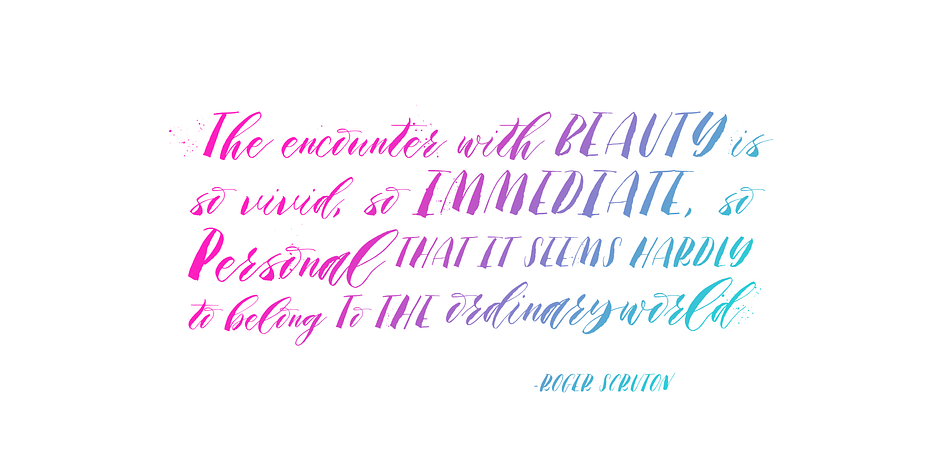 The encounter with BEAUTY is
so vivid, so IMMEDIATE, so
Personal THAT IT SEEMS HARDLY
to belong To THE ordinary world
-ROGER SCRUTON